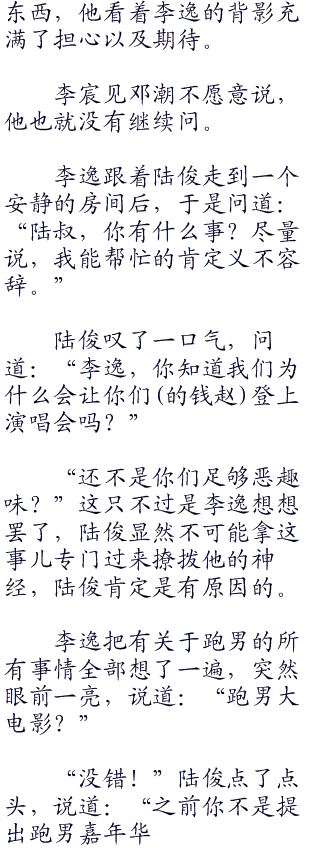 东西，他看着李逸的背影充
满了担心以及期待。
李宸见邓潮不愿意说，
他也就没有继续问。
李逸跟着陆俊走到一个
安静的房间后，于是问道：
“陆叔，你有什么事？尽量
说，我能帮忙的肯定义不容
辞。”
陆俊叹了一口气，问
道：“李逸，你知道我们为
什么会让你们(的钱赵)登上
演唱会吗？”
“还不是你们足够恶趣
味？”这只不过是李逸想想
罢了，陆俊显然不可能拿这
事儿专门过来撩拨他的神
经，陆俊肯定是有原因的。
李逸把有关于跑男的所
有事情全部想了一遍，突然
眼前一亮，说道：“跑男大
电影？”
“没错！”陆俊点了点
头，说道：“之前你不是提
出跑男嘉年华